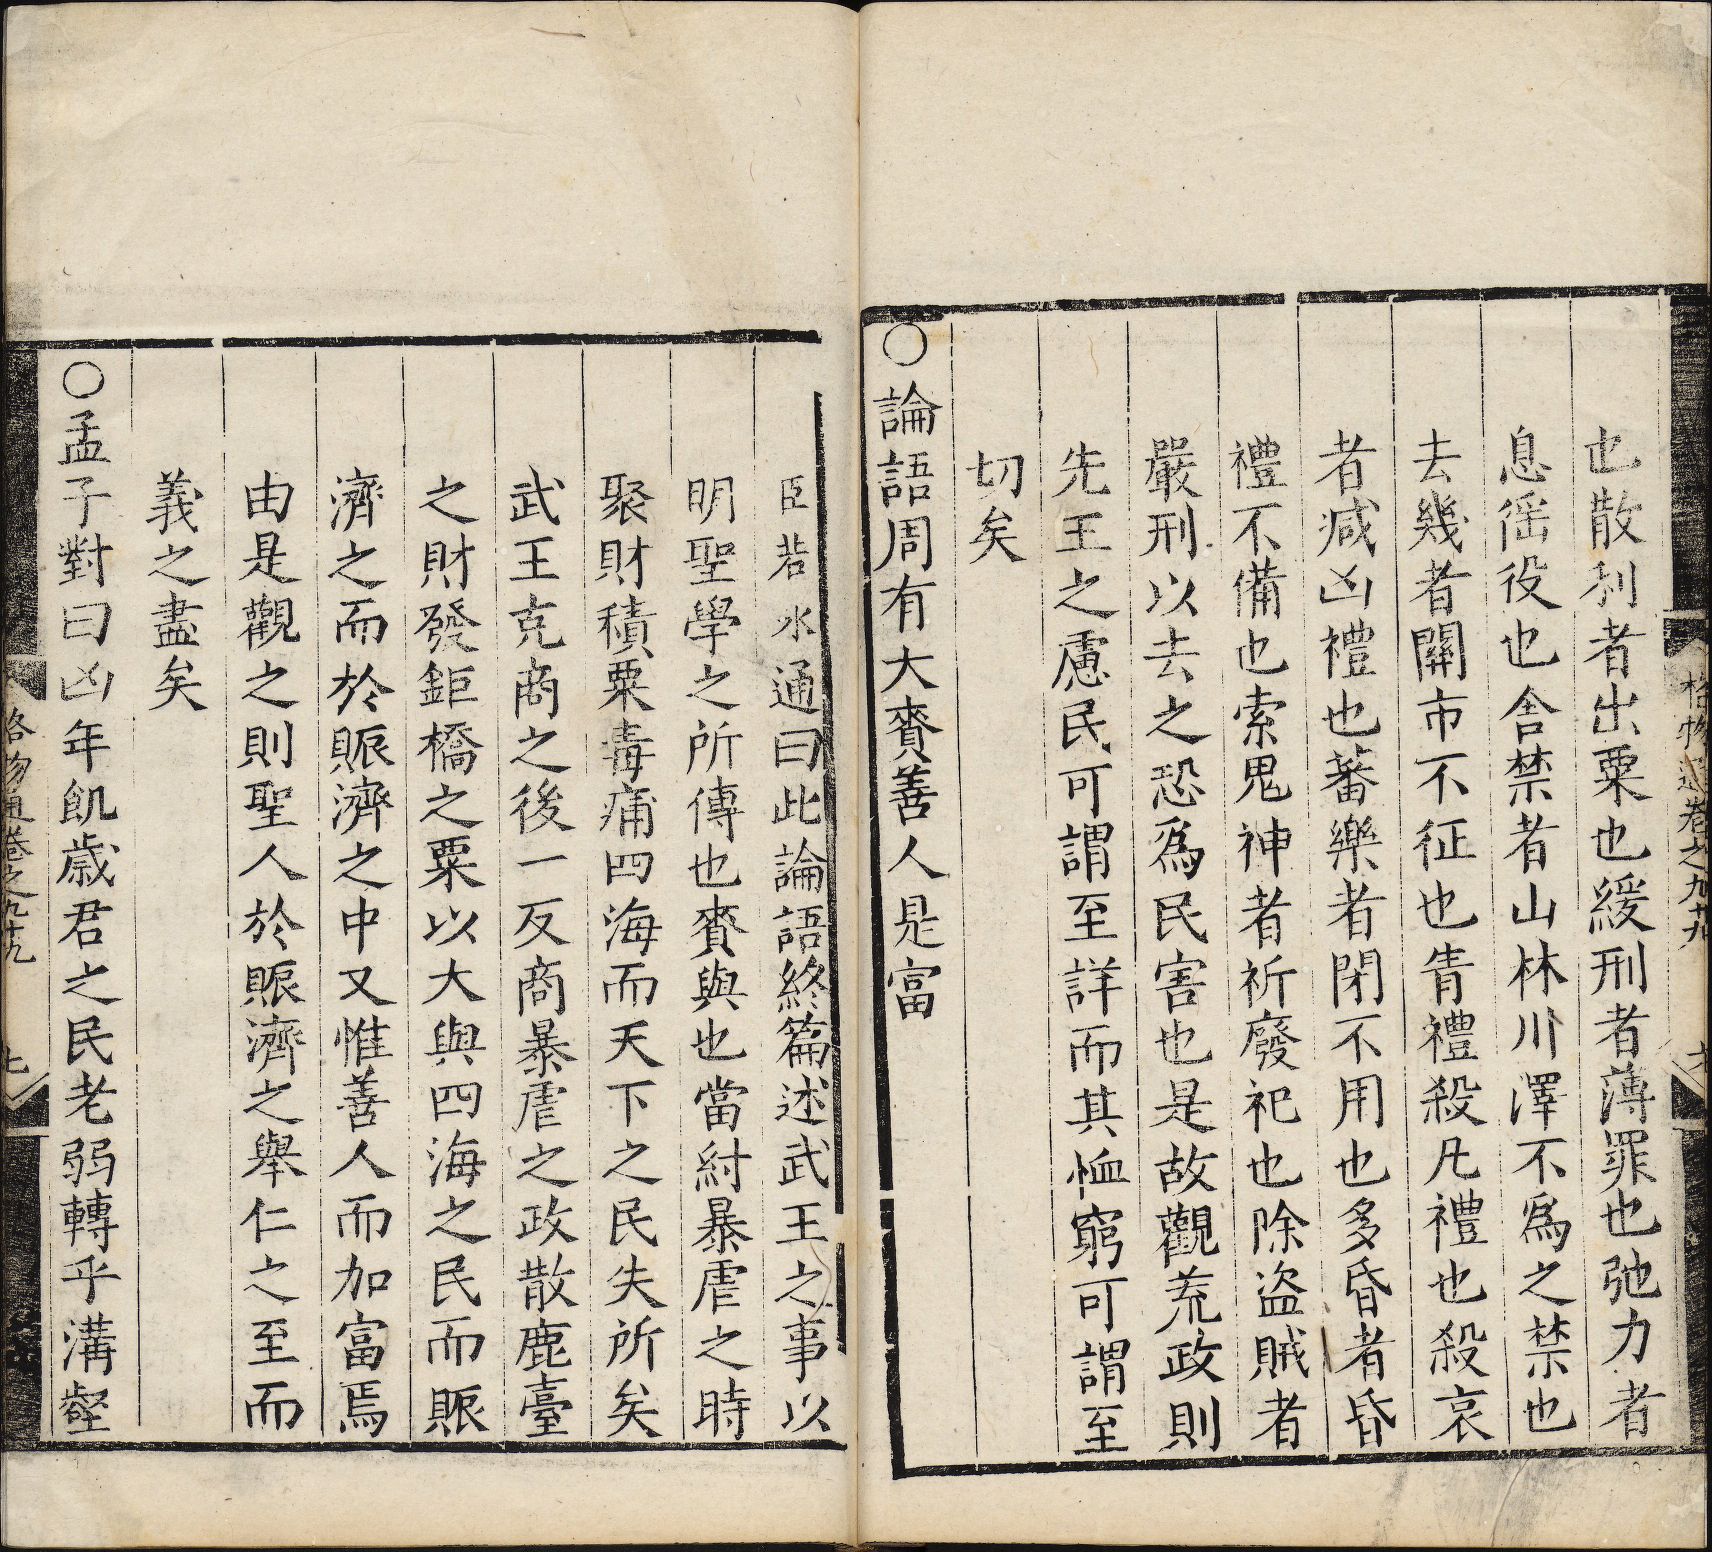 也散利者出粟也緩刑者薄罪也弛力者
息徭役也舍禁者山林川澤不爲之禁也
去幾者關市不征也眚禮殺凡禮也殺哀
者减凶禮也蕃樂者閉不用也多昏者昏
禮不備也索鬼神者祈廢祀也除盗賊者
嚴刑以去之恐爲民害也是故觀荒政則
先王之慮民可謂至詳而其恤窮可謂至
切矣
○論語周有大賚善人是富
格物通卷之九十九
臣若水通曰此論語終篇述武王之事以
明聖學之所傳也賚與也當紂暴虐之時
聚財積粟毒痡四海而天下之民失所矣
武王克商之後一反商暴虐之政散鹿臺
之財發鉅橋之粟以大與四海之民而賑
濟之而於賑濟之中又惟善人而加富焉
由是觀之則聖人於賑濟之舉仁之至而
義之盡矣
○孟子對曰凶年飢歲君之民老弱轉乎溝壑
格物通卷之九十九
七